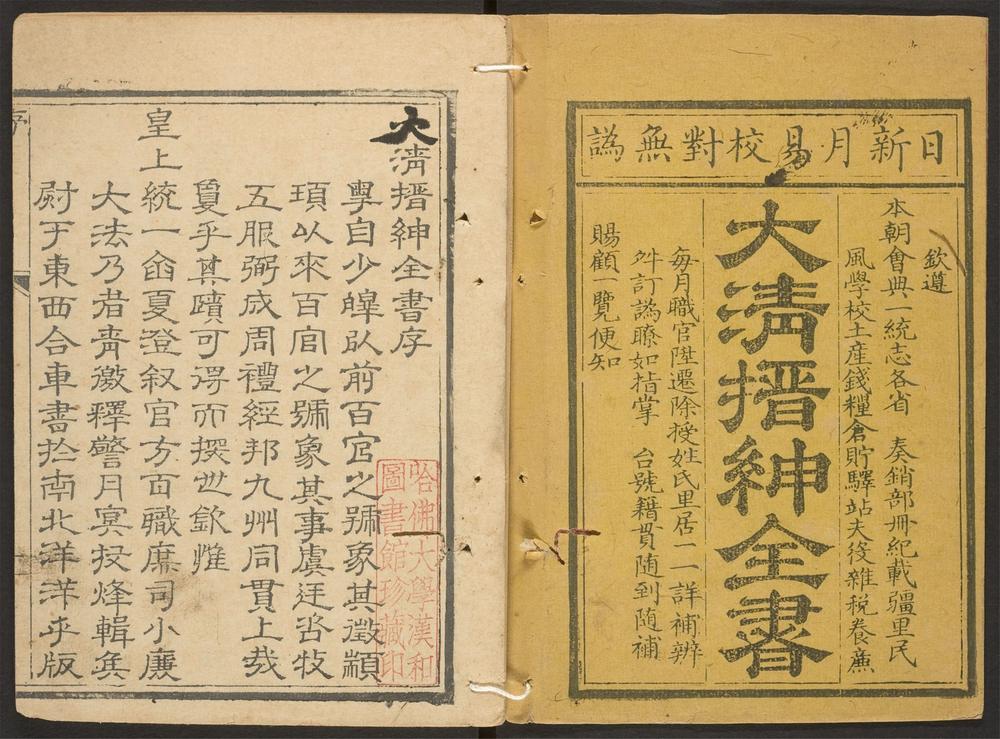 日新月易校對無譌
欽遵
本朝會典一統志各省 奏銷部冊紀載疆里民
風學校土產錢糧倉貯驛站夫役雜稅養廉
大淸搢紳全書
每月職官陞遷除授姓氏里居一一詳補辨
舛訂譌瞭如指掌 台號籍貫隨到隨補
賜顧一覽便知
大淸搢紳全書序
粵自少皥以前百官之號象其徵顓
頊以來百官之號象其事虞廷咨牧
五服弼成周禮經邦九州同貫上哉
夐乎其蹟可得而探也欽惟
皇上統一函夏澄叙官方百職庶司小廉
大法乃者靑徼釋警月
烽輯兵
尉于東西合車書於南北洋洋乎版
序
哈佛大學漢和
圖書館珍藏印